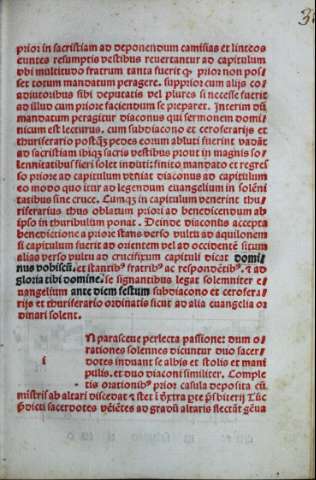 prior in sacristiam ad deponendum camisias et linteos
euntes resumptis vestibus reuertantur ad capitulum
vbi multitudo fratrum tanta fuerit ꝙ prior non pos
set totum mandatum peragere. supprior cum alijs co
adiutoribus sibi deputatis vel plures si necesse fuerit
ad illud cum priore faciendum se preparet. Interim dũ
mandatum peragitur diaconus qui sermonem domi
nicum est lecturus. cum subdiacono et ceroferarijs et
thuriferario postꝙ̃ pedes eorum abluti fuerint vadãt
ad sacristiam ibiqꝫ sacris vestibus prout in magnis so
lennitatibus fieri solet induti: finito mandato et regres
so priore ad capitulum veniat diaconus ad capitulum
eo modo quo itur ad legendum euangelium in solẽni
tatibus sine cruce. Cumqꝫ in capitulum venerint thu
riferarius thus oblatum priori ad benedicendum ab
ipso in thuribulum ponat. Deinde diaconus accepta
benedictione a priore stans verso vultu ad aquilonem
si capitulum fuerit ad orientem vel ad occidentẽ situm
alias verso vultu ad crucifixum capituli dicat domi
nus vobiscũ. et stantibꝰ fratribꝰ ac respondẽtibꝰ. ⁊ ad
gloria tibi domine. se signantibus legat solemniter e
uangelium ante diem festum subdiacono et cerofera
rijs et thuriferario ordinatis sicut ad alia euangelia or
dinari solent.
i N parasceue perlecta passione: dum o
rationes solennes dicuntur duo sacer
dotes induant se albis et stolis et mani
pulis. et duo diaconi similiter. Comple
tis orationibꝰ prior casula deposita cũ
ministris ab altari discedat ⁊ stet ĩ extra pte p̃sbiterij Tũc
p̃dicti sacerdotes veĩẽtes ad gradũ altaris flectãt gẽua